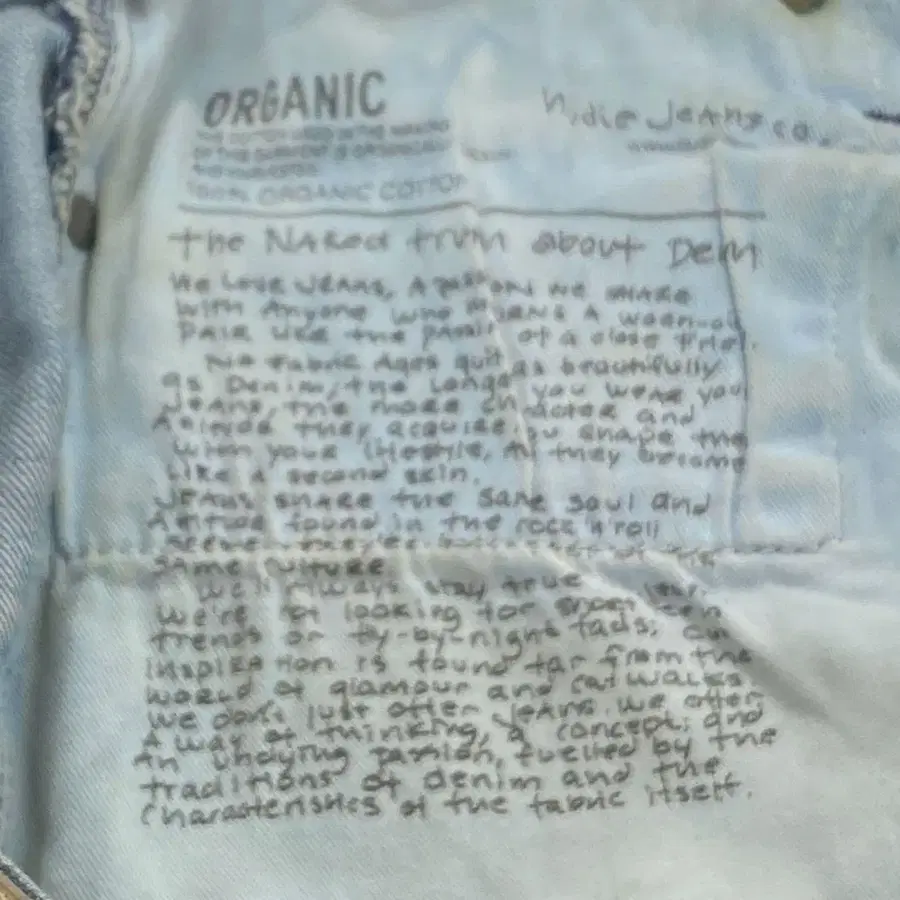 ORGANIC
Nudie Jeans co.
100% ORGANIC COTTON
The Naked truth about Den
We Love Jeans, A passion we share
With Anyone who means A worn-out
pair like the passing of a close frie
No fabric Ages quit as beautifully
as Denim, the longe you wear you
Jeans, the more character and
they acquire. you shape the
with your lifestyle, they become
Like A second skin.
Jeans share the same soul and
Attitude found in the rock'n'roll
same culture
We'll always stay true
We're looking for short
trends or fly-by-night fads;
Inspiration is found far from the
world of glamour and catwalks.
We don't just offer Jeans. We offer
A way of thinking, a concept; and
An undying passion, fuelled by the
traditions of denim and the
Characteristics of the fabric itself.